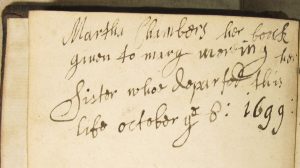 Martha Chambers her book
given to mary mering her
Sister who departed this
life october ye 8: 1699: